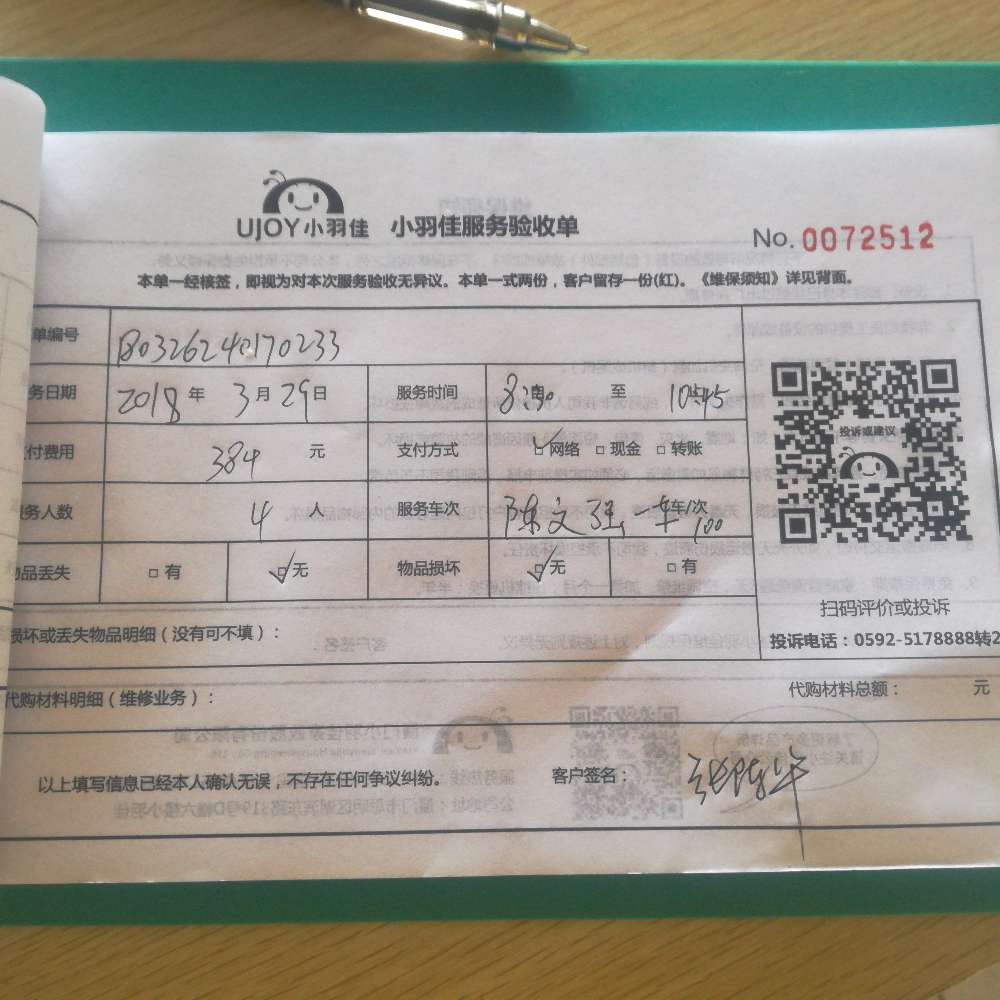 UJOY小羽佳 小羽佳服务验收单
No. 0072512
本单一经核签，即视为对本次服务验收无异议。本单一式两份，客户留存一份(红)。《维保须知》详见背面。
单编号 B0326240170233
务日期 2018 年 3 月 29 日 服务时间 8:30 至 10:45
付费用 384 元 支付方式 ☑网络 □现金 □转账
务人数 4 人 服务车次 陈文强 车/次 100
物品丢失 □有 ☑无 物品损坏 ☑无 □有
投诉或建议
扫码评价或投诉
投诉电话：0592-5178888转2
损坏或丢失物品明细（没有可不填）：
代购材料明细（维修业务）： 代购材料总额： 元
以上填写信息已经本人确认无误，不存在任何争议纠纷。 客户签名：